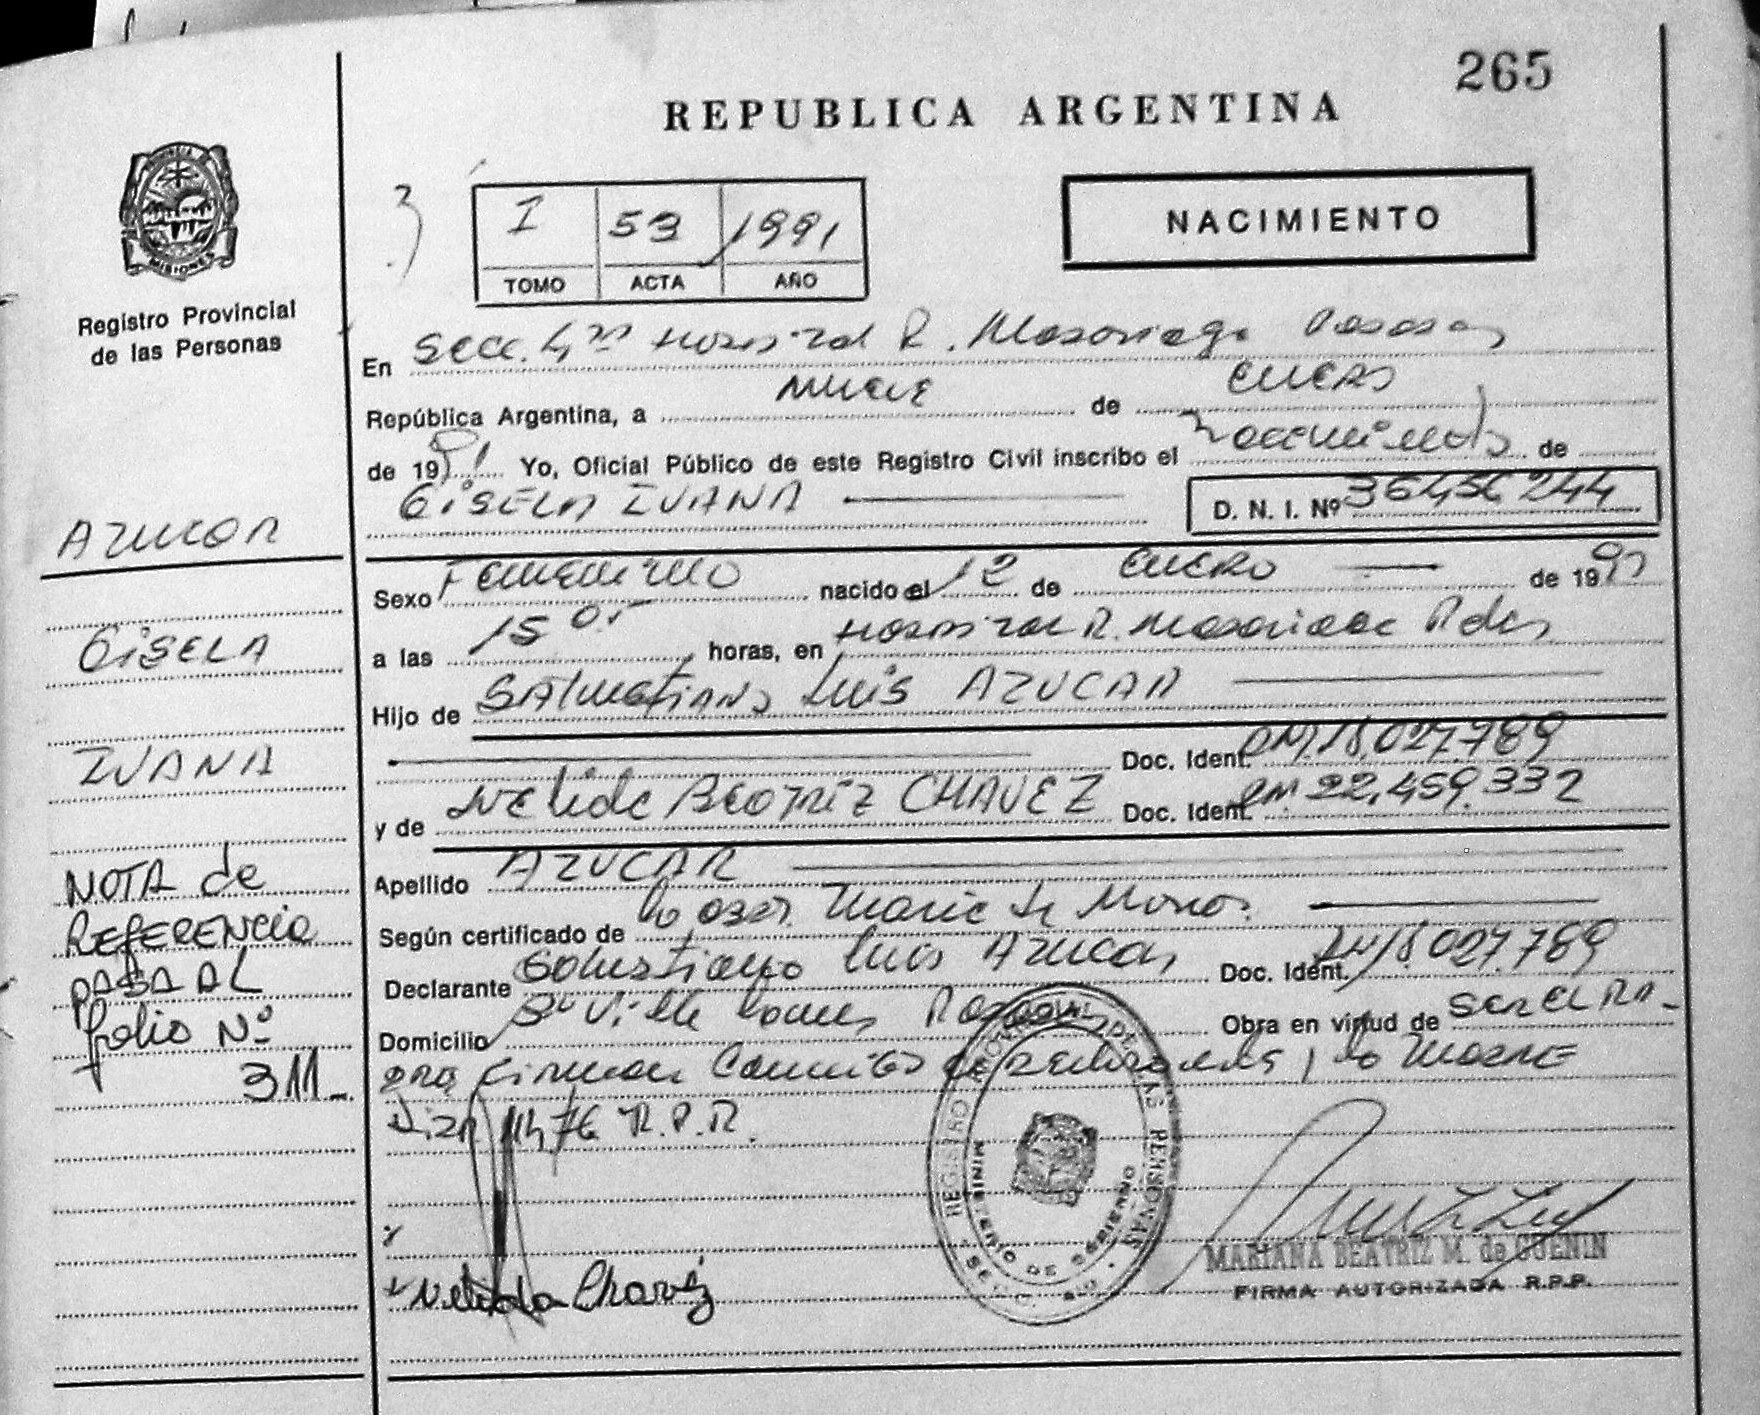 265
REPUBLICA ARGENTINA
PROVINCIA DE
MISIONES
Registro Provincial
de las Personas
I 53 1991
TOMO ACTA AÑO
NACIMIENTO
En Secc. 4ta Hospital R. Madariaga Posadas
República Argentina, a nueve de enero
de 1991 Yo, Oficial Público de este Registro Civil inscribo el nacimiento de
GISELA IVANA D. N. I. Nº 36456244
AZUCAR
GISELA
IVANA
NOTA de
REFERENCIA
PASA AL
folio Nº
311-
Sexo Femenino nacido el 12 de enero de 19
a las 15 horas, en Hospital R. Madariaga Pdas
Hijo de SALUSTIANO Luis AZUCAR
Doc. Ident. DNI 18.027.789
y de Nelida BEATRIZ CHAVEZ Doc. Ident. DNI 22.459.332
Apellido AZUCAR
Según certificado de
Declarante Salustiano Luis Azucar Doc. Ident. DNI 18027.789
Domicilio Obra en virtud de ser el PA-
DRE Firman la madre
R.P.P.
Nelida Chavéz
REGISTRO PROVINCIAL DE LAS PERSONAS
MINISTERIO DE GOBIERNO
MARIANA BEATRIZ M. de GUENIN
FIRMA AUTORIZADA R.P.P.